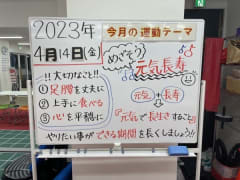 2023年
今月の運動テーマ
4月14日(金)
めざそう
元気長寿
!!大切なこと!!
①足腰を丈夫に
②上手に食べる
③心を平穏に
元気+長寿
『元気で長生きすること』
やりたい事ができる期間を長くしましょう!!